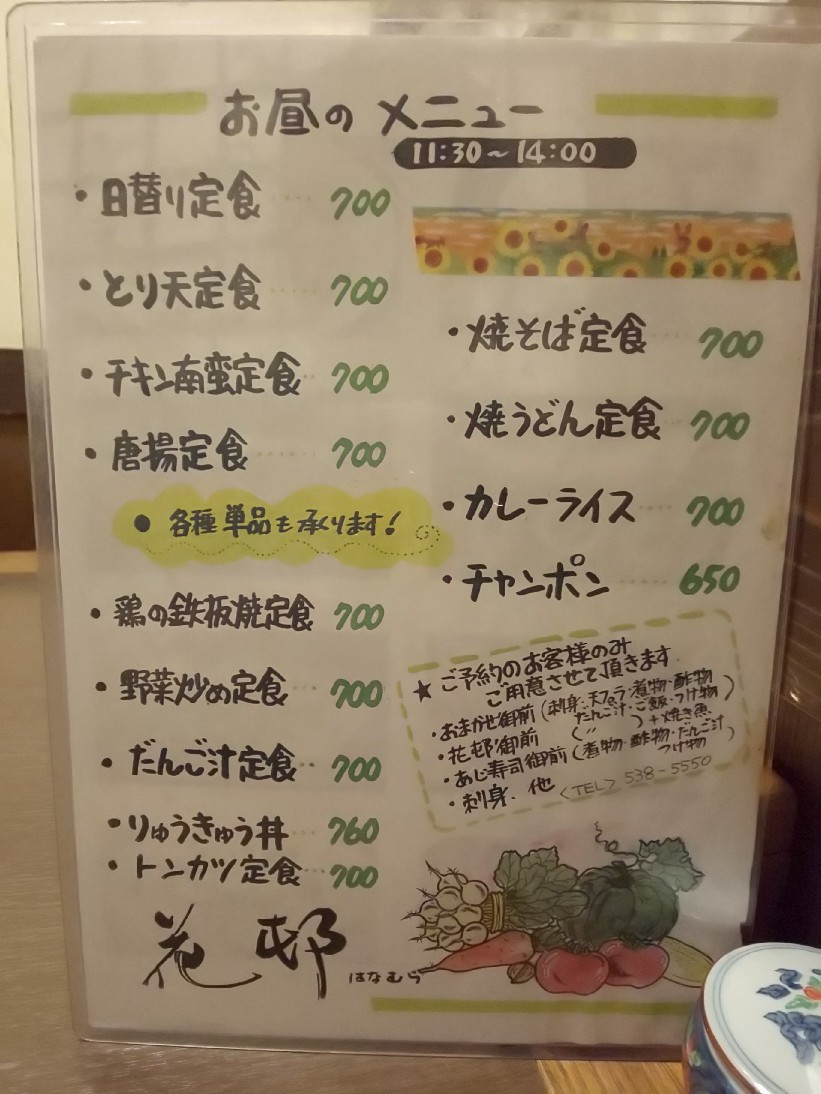 お昼の メニュー
11:30～14:00
・日替り定食 ・・・・ 700
・とり天定食 ・・・・ 700
・チキン南蛮定食 ・・ 700
・唐揚定食 ・・・・ 700
● 各種単品も承ります!
・鶏の鉄板焼定食 700
・野菜炒め定食 ・・ 700
・だんご汁定食 ・・ 700
・りゅうきゅう丼 ・・ 760
・トンカツ定食 ・・ 700
花邨 はなむら
・焼そば定食 ・・・ 700
・焼うどん定食 ・・ 700
・カレーライス ・・・ 700
・チャンポン ・・・・ 650
★ ご予約のお客様のみ
ご用意させて頂きます
・おまかせ御前 (刺身・天プラ・煮物・酢物
だんご汁・ご飯・つけ物)
・花邨御前 ( 〃 ) +焼き魚
・あじ寿司御前 (煮物・酢物・だんご汁
つけ物)
・刺身、他 <TEL> 538-5550